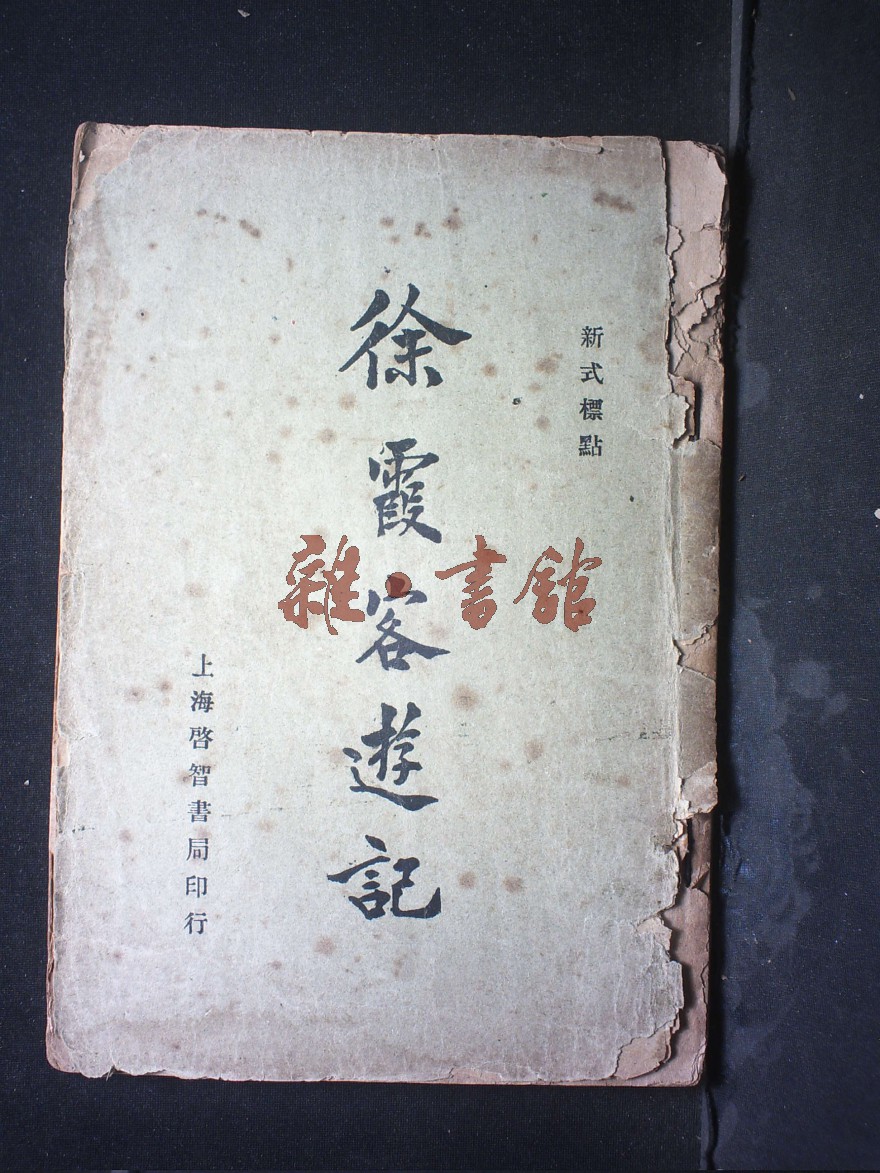 新式標點
徐霞客遊記
上海啓智書局印行
雜·書館